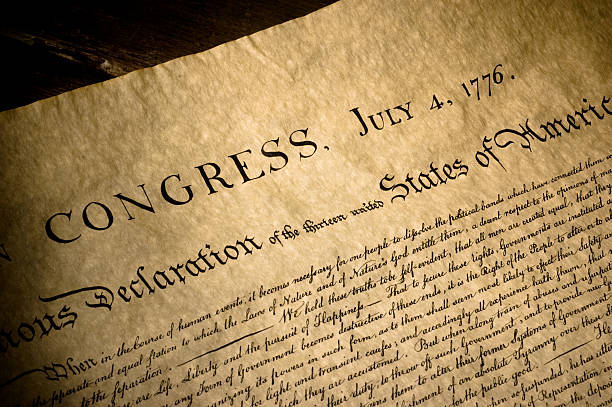 N CONGRESS, JULY 4, 1776.
ous Declaration of the thirteen united States of Americ
When in the Course of human events, it becomes necessary for one people to dissolve the political bands which have connected them
the separate and equal station to which the Laws of Nature and of Nature's God entitle them, a decent respect to the opinions of
to the separation. — We hold these truths to be self-evident, that all men are created equal, that
are Life, Liberty and the pursuit of Happiness. — That to secure these rights, Governments are instituted
any Form of Government becomes destructive of these ends, it is the Right of the People to alter or to
its powers in such form, as to them shall seem most likely to effect their Safety
for light and transient causes; and accordingly all experience hath shewn, that
which they are accustomed. But when a long train of abuses and
their duty, to throw off such Government, and to provide new
them to alter their former Systems of Government
an absolute Tyranny over these
for the public good.